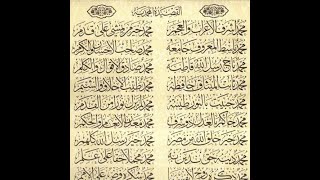 القصيدة المحمدية
محمد أشرف الأعراب والعجم محمد خير من يمشي على قدم
محمد باسط المعروف جامعه محمد صاحب الإحسان والكرم
محمد تاج رسل الله قاطبة محمد صادق الأقوال والكلم
محمد ثابت الميثاق حافظه محمد طيب الأخلاق والشيم
محمد بالنور طينته محمد لم يزل نورا من القدم
محمد حاكم بالعدل ذو شرف محمد معدن الإنعام والحكم
محمد خير خلق الله من مضر محمد خير رسل الله كلهم
محمد دينه حق ندين به محمد حقا على علم
محمد ذكره روح محمد شكره فرض على الأمم